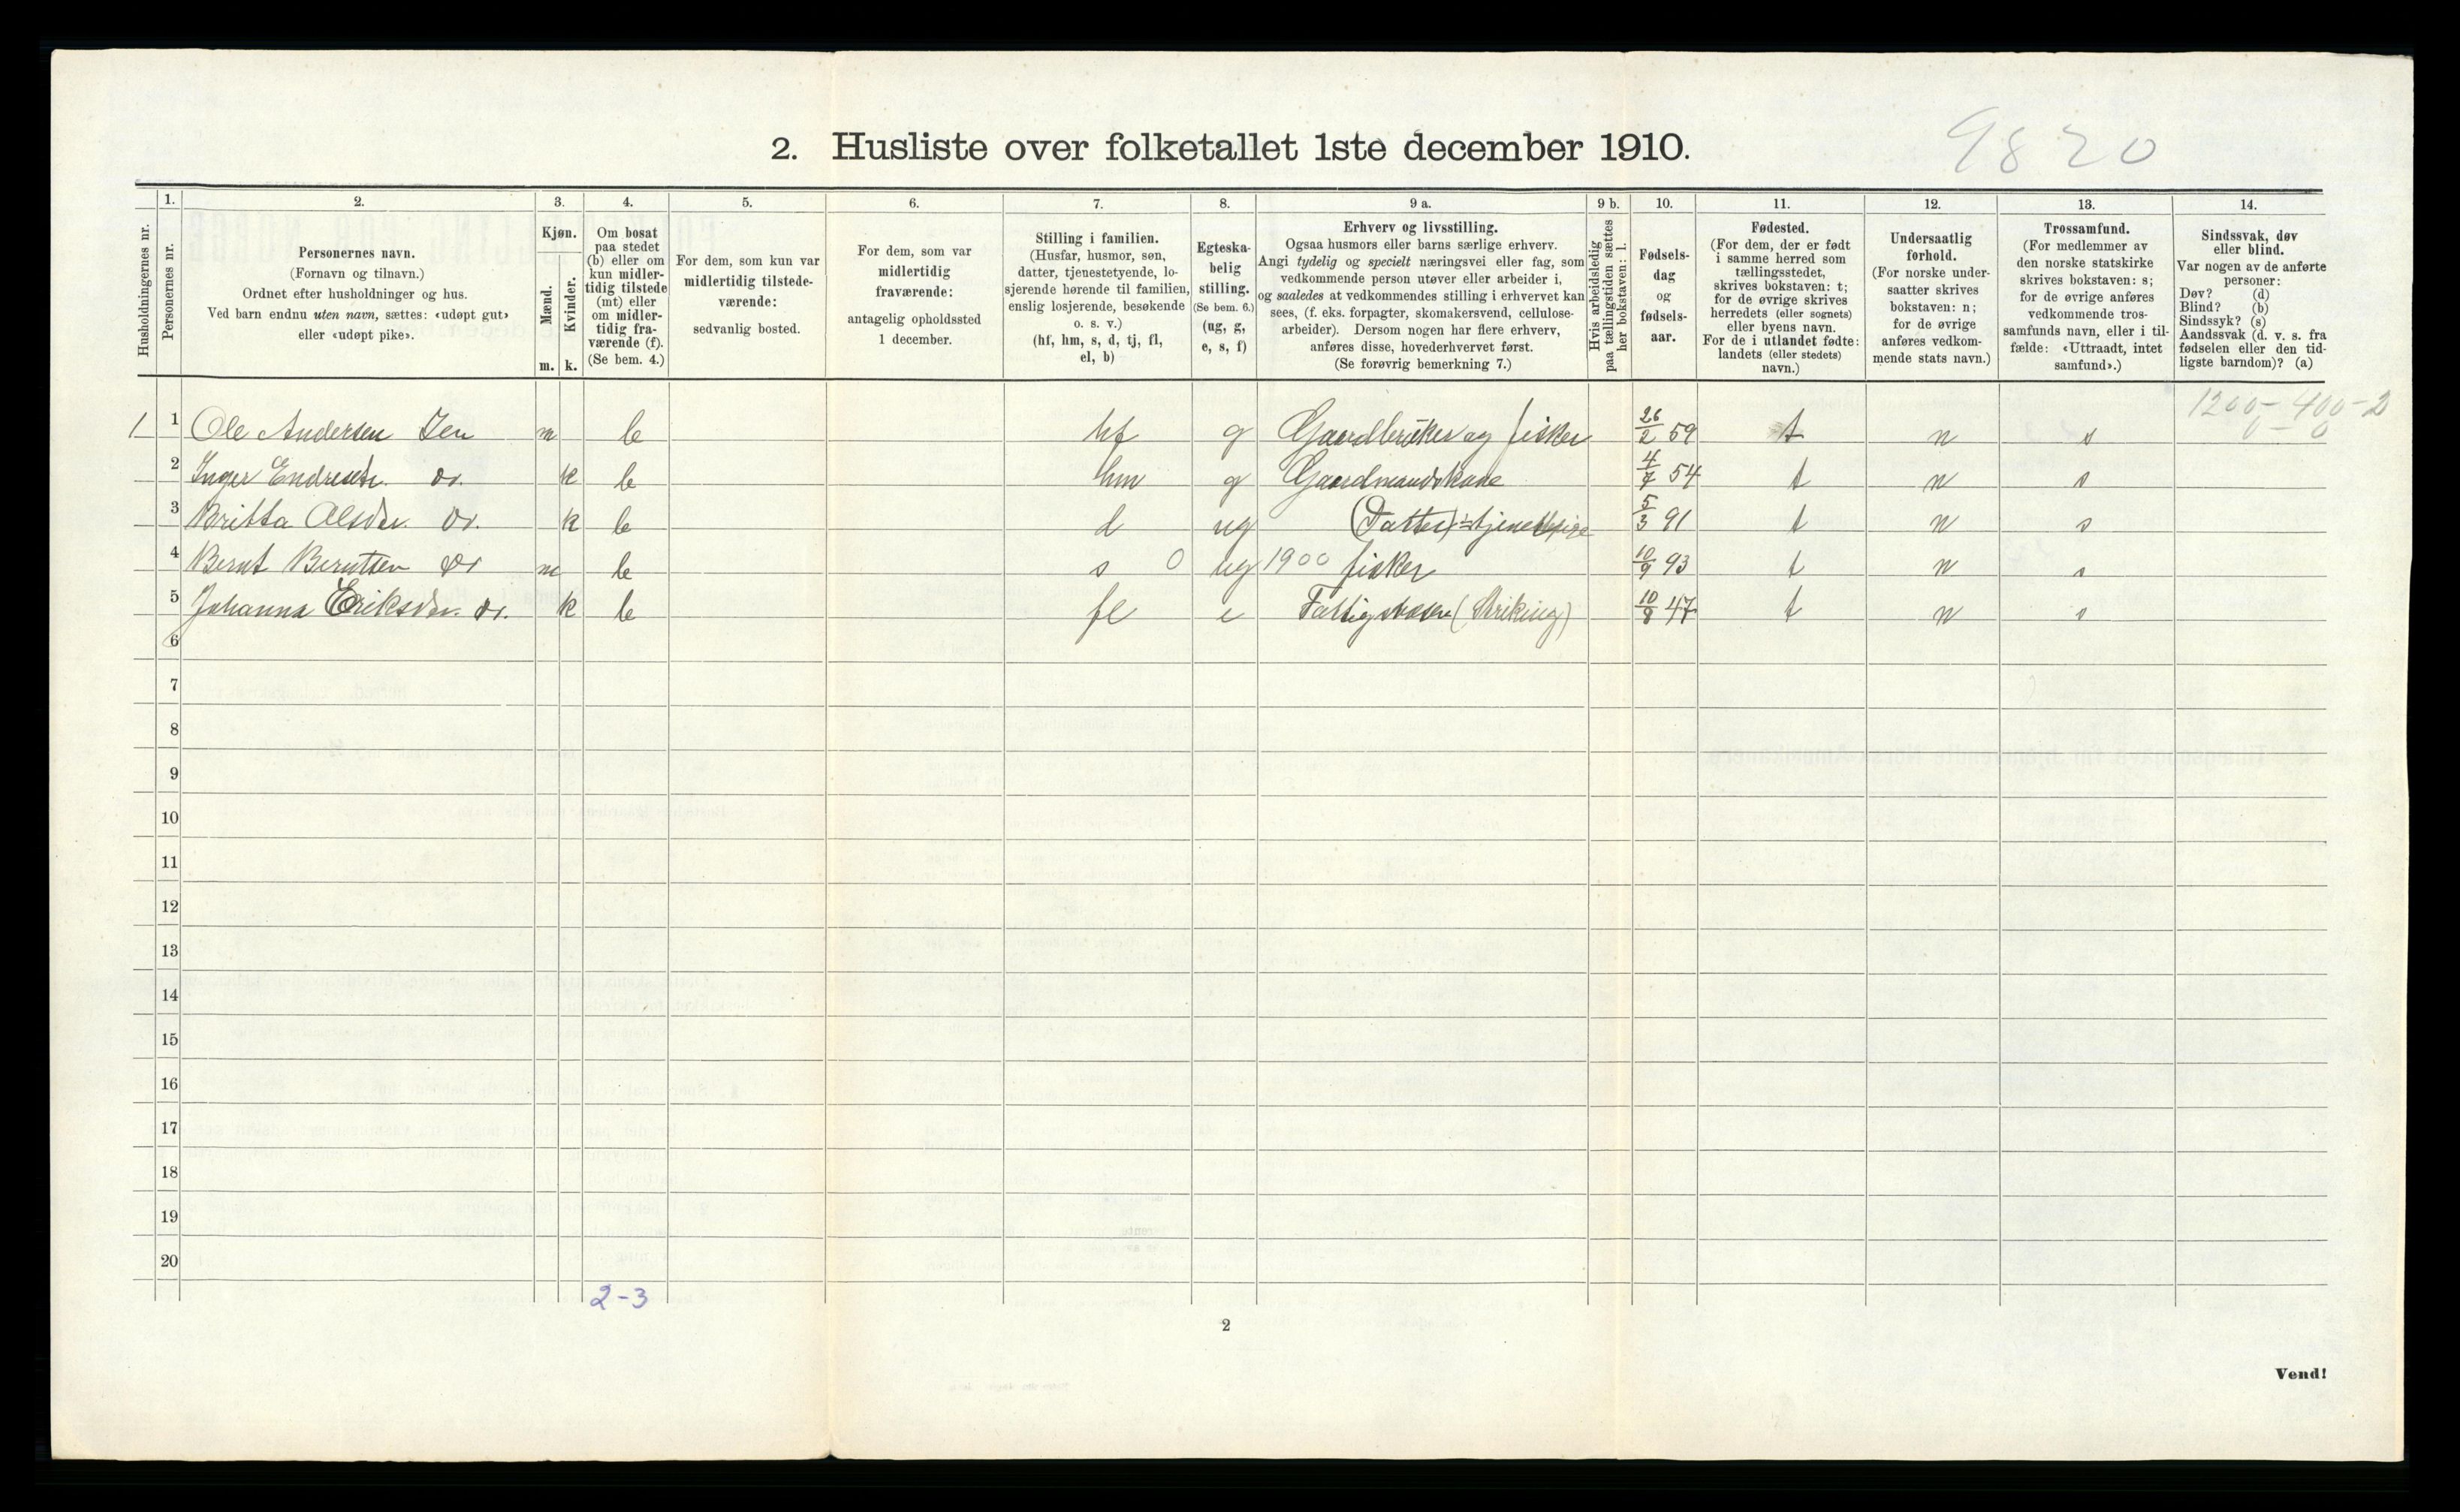 2. Husliste over folketallet 1ste december 1910.
9820
Husholdningernes nr.
1.
Personernes nr.
2.
Personernes navn.
(Fornavn og tilnavn.)
Ordnet efter husholdninger og hus.
Ved barn endnu uten navn, sættes: «udøpt gut»
eller «udøpt pike».
3.
Kjøn.
Mænd.
Kvinder.
m. k.
4.
Om bosat
paa stedet
(b) eller om
kun midler-
tidig tilstede
(mt) eller
om midler-
tidig fra-
værende (f).
(Se bem. 4.)
5.
For dem, som kun var
midlertidig tilstede-
værende:
sedvanlig bosted.
6.
For dem, som var
midlertidig
fraværende:
antagelig opholdssted
1 december.
7.
Stilling i familien.
(Husfar, husmor, søn,
datter, tjenestetyende, lo-
sjerende hørende til familien,
enslig losjerende, besøkende
o. s. v.)
(hf, hm, s, d, tj, fl,
el, b)
8.
Egteska-
belig
stilling.
(Se bem. 6.)
(ug, g,
e, s, f)
9 a.
Erhverv og livsstilling.
Ogsaa husmors eller barns særlige erhverv.
Angi tydelig og specielt næringsvei eller fag, som
vedkommende person utøver eller arbeider i,
og saaledes at vedkommendes stilling i erhvervet kan
sees, (f. eks. forpagter, skomakersvend, cellulose-
arbeider). Dersom nogen har flere erhverv,
anføres disse, hovederhvervet først.
(Se forøvrig bemerkning 7.)
9 b.
Hvis arbeidsledig
paa tællingstiden sættes
her bokstaven: l.
10.
Fødsels-
dag
og
fødsels-
aar.
11.
Fødested.
(For dem, der er født
i samme herred som
tællingsstedet,
skrives bokstaven: t;
for de øvrige skrives
herredets (eller sognets)
eller byens navn.
For de i utlandet fødte:
landets (eller stedets)
navn.)
12.
Undersaatlig
forhold.
(For norske under-
saatter skrives
bokstaven: n;
for de øvrige
anføres vedkom-
mende stats navn.)
13.
Trossamfund.
(For medlemmer av
den norske statskirke
skrives bokstaven: s;
for de øvrige anføres
vedkommende tros-
samfunds navn, eller i til-
fælde: «Uttraadt, intet
samfund».)
14.
Sindssvak, døv
eller blind.
Var nogen av de anførte
personer:
Døv? (d)
Blind? (b)
Sindssyk? (s)
Aandssvak (d. v. s. fra
fødselen eller den tid-
ligste barndom)? (a)
1200-400-2
0-0
1 1 Ole Andersen m b hf g Gaardbruker og fisker 26/2 59 t n s
2 Inger Endresdr. do. k b hm g Gaardmandskone 4/7 54 t n s
3 Britta Olsdr. do. k b d ug (Datter) tjenestpige 5/3 91 t n s
4 Bernt Berntsen do m b s 0 ug 1900 fisker 10/9 93 t n s
5 Johanna Eriksdr. do. k b fl e Fattigvæsen (Strikning) 10/8 47 t n s
6
7
8
9
10
11
12
13
14
15
16
17
18
19
20
2-3
2
Vend!